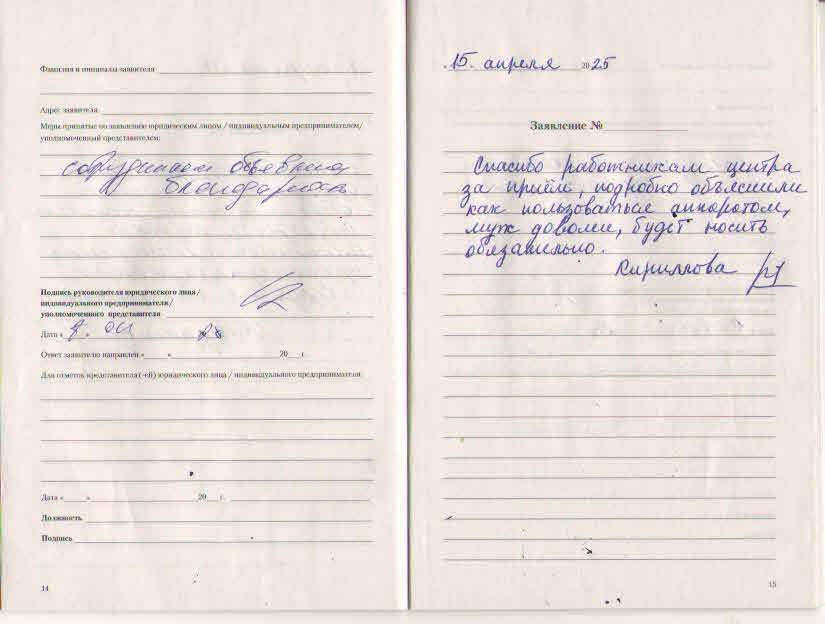 Фамилия и инициалы заявителя
Адрес заявителя
Меры принятые по заявлению юридическим лицом / индивидуальным предпринимателем/
уполномоченный представителем:
сотрудникам объявлена
благодарность
Подпись руководителя юридического лица /
индивидуального предпринимателя/
уполномоченного представителя
Дата «
Ответ заявителю направлен « » 20 г.
Для отметок представителя (-ей) юридического лица / индивидуального предпринимателя
Дата « » 20 г.
Должность
Подпись
14
15 апреля 2025
Заявление №
Спасибо работникам центра
за приём, подробно объяснили
как пользоваться аппаратом,
муж доволен, будет носить
обязательно.
Кириллова
15